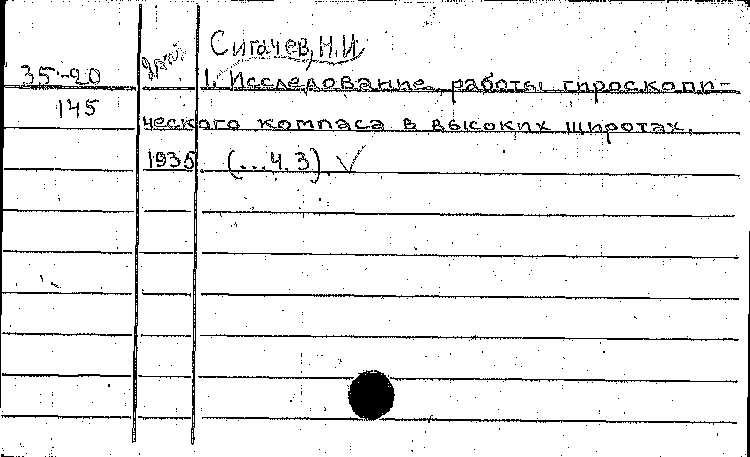 Сигачев, Н.И.
35-20
1. Исследование работы гироскопи-
145
ческого компаса в высоких широтах.
1935. (...ч.3).